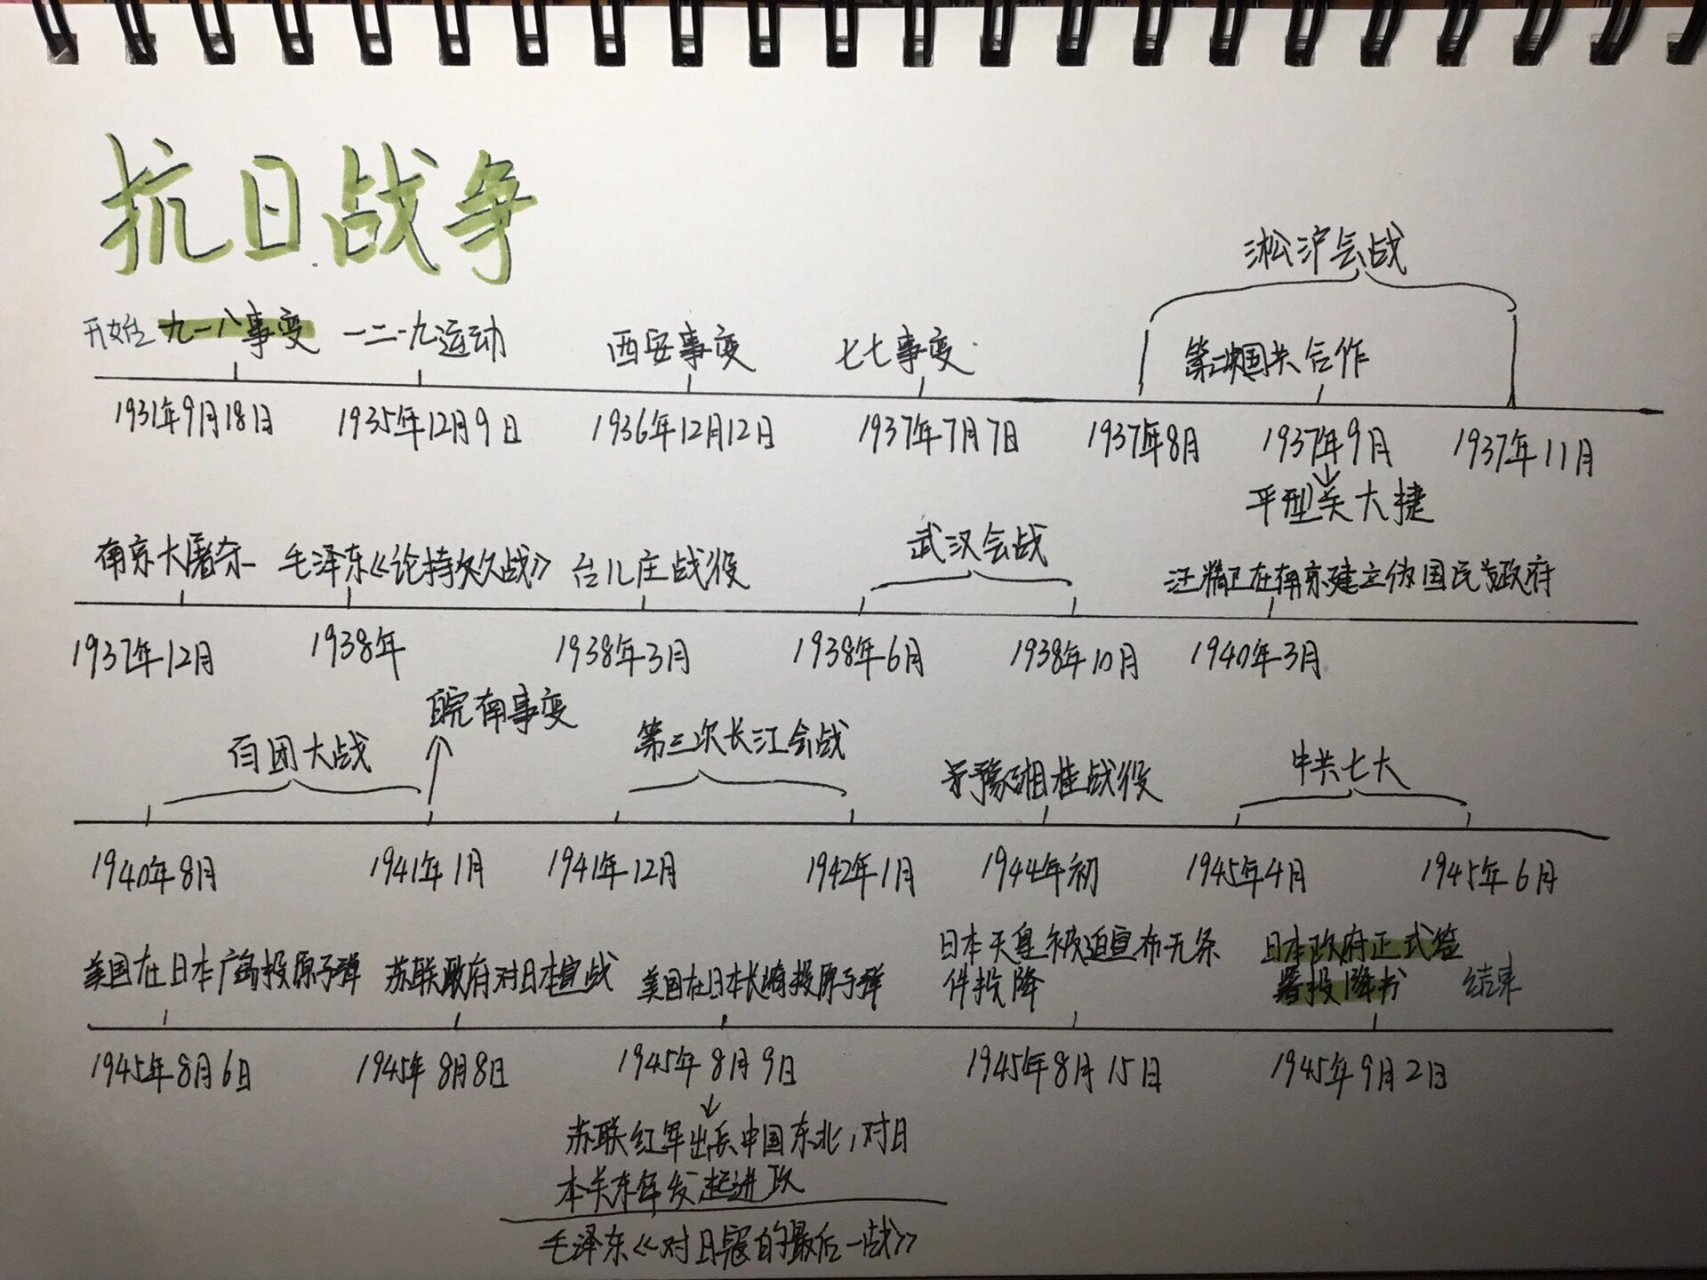 抗日战争
淞沪会战
开始 九一八事变 一二·九运动 西安事变 七七事变 第二次国共合作
1931年9月18日 1935年12月9日 1936年12月12日 1937年7月7日 1937年8月 1937年9月 1937年11月
平型关大捷
南京大屠杀 毛泽东《论持久战》 台儿庄战役 武汉会战 汪精卫在南京建立伪国民政府
1937年12月 1938年 1938年3月 1938年6月 1938年10月 1940年3月
皖南事变
百团大战 第三次长江会战 豫湘桂战役 中共七大
1940年8月 1941年1月 1941年12月 1942年1月 1944年初 1945年4月 1945年6月
美国在日本广岛投原子弹 苏联政府对日本宣战 美国在日本长崎投原子弹 日本天皇被迫宣布无条 日本政府正式签
件投降 署投降书 结束
1945年8月6日 1945年8月8日 1945年8月9日 1945年8月15日 1945年9月2日
苏联红军出兵中国东北,对日
本关东军发起进攻
毛泽东《对日寇的最后一战》